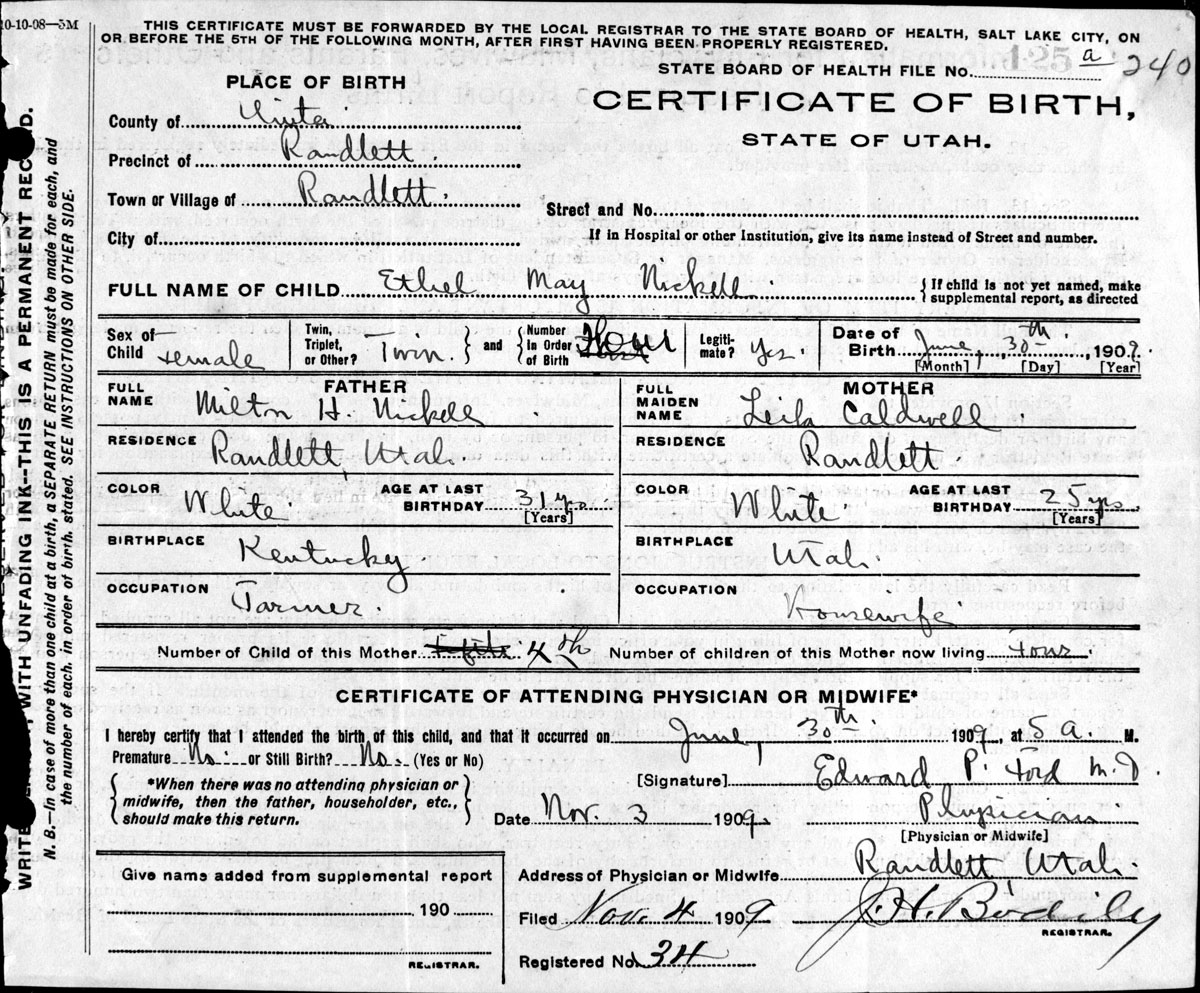 10-10-08—5M
THIS CERTIFICATE MUST BE FORWARDED BY THE LOCAL REGISTRAR TO THE STATE BOARD OF HEALTH, SALT LAKE CITY, ON
OR BEFORE THE 5TH OF THE FOLLOWING MONTH, AFTER FIRST HAVING BEEN PROPERLY REGISTERED.
STATE BOARD OF HEALTH FILE NO. 125 a 240
PLACE OF BIRTH
CERTIFICATE OF BIRTH,
STATE OF UTAH.
County of Uinta
Precinct of Randlett.
Town or Village of Randlett.
Street and No.
City of
If in Hospital or other Institution, give its name instead of Street and number.
FULL NAME OF CHILD Ethel May Nickell { If child is not yet named, make supplemental report, as directed
Sex of Child Female Twin, Triplet, or Other? Twin. } and { Number In Order of Birth Four Legiti-mate? Yes. Date of Birth June, 30th, 1909. [Month] [Day] [Year]
FATHER
MOTHER
FULL NAME Milton H. Nickell
FULL MAIDEN NAME Leila Caldwell.
RESIDENCE Randlett, Utah.
RESIDENCE Randlett
COLOR White. AGE AT LAST BIRTHDAY 31 yr. [Years]
COLOR White AGE AT LAST BIRTHDAY 25 yr. [Years]
BIRTHPLACE Kentucky
BIRTHPLACE Utah.
OCCUPATION Farmer.
OCCUPATION Housewife.
Number of Child of this Mother Fifth 4th Number of children of this Mother now living Four.
CERTIFICATE OF ATTENDING PHYSICIAN OR MIDWIFE*
I hereby certify that I attended the birth of this child, and that it occurred on June, 30th. 1909, at 5 a. M.
Premature No. or Still Birth? No. (Yes or No)
{ *When there was no attending physician or midwife, then the father, householder, etc., should make this return. }
[Signature] Edward P. Ford M.D.
Date Nov. 3 1909. Physician
[Physician or Midwife]
Address of Physician or Midwife Randlett Utah.
Give name added from supplemental report
190
REGISTRAR.
Filed Nov 4 1909 J. H. Bodily
REGISTRAR.
Registered No. 34
WRITE WITH UNFADING INK—THIS IS A PERMANENT RECORD.
N. B.—In case of more than one child at a birth, a SEPARATE RETURN must be made for each, and
the number of each, in order of birth, stated. SEE INSTRUCTIONS ON OTHER SIDE.